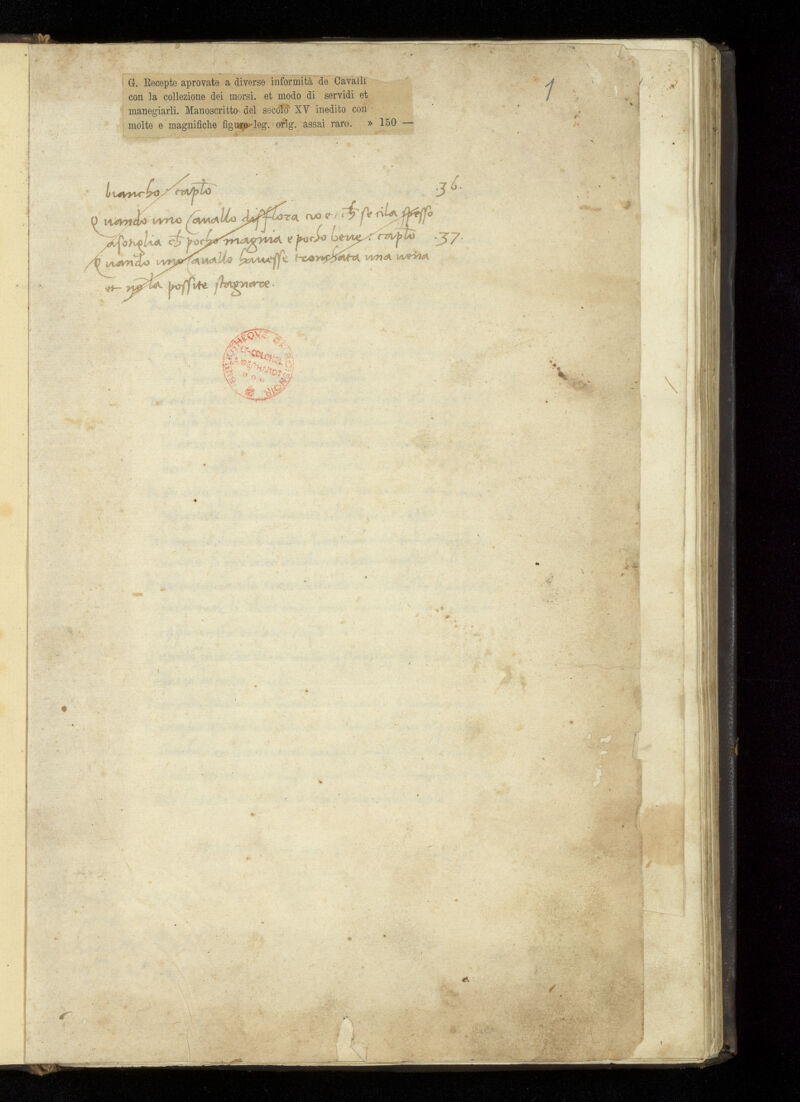 1
G. Recepte aprovate a diverse informità de Cavalli
con la collezione dei morsi. et modo di servidi et
manegiarli. Manoscritto del secolo XV inedito con
molte e magnifiche figure leg. orig. assai raro. » 150 —
biancho / caplo .36.
Quando uno Cavallo difflora cioe / ch se
ch pocho magnia e pocho beve : caplo .37.
Quando uno Cavallo havesse tronchata una vena
et no la possite stagnare.
LT-COLONEL